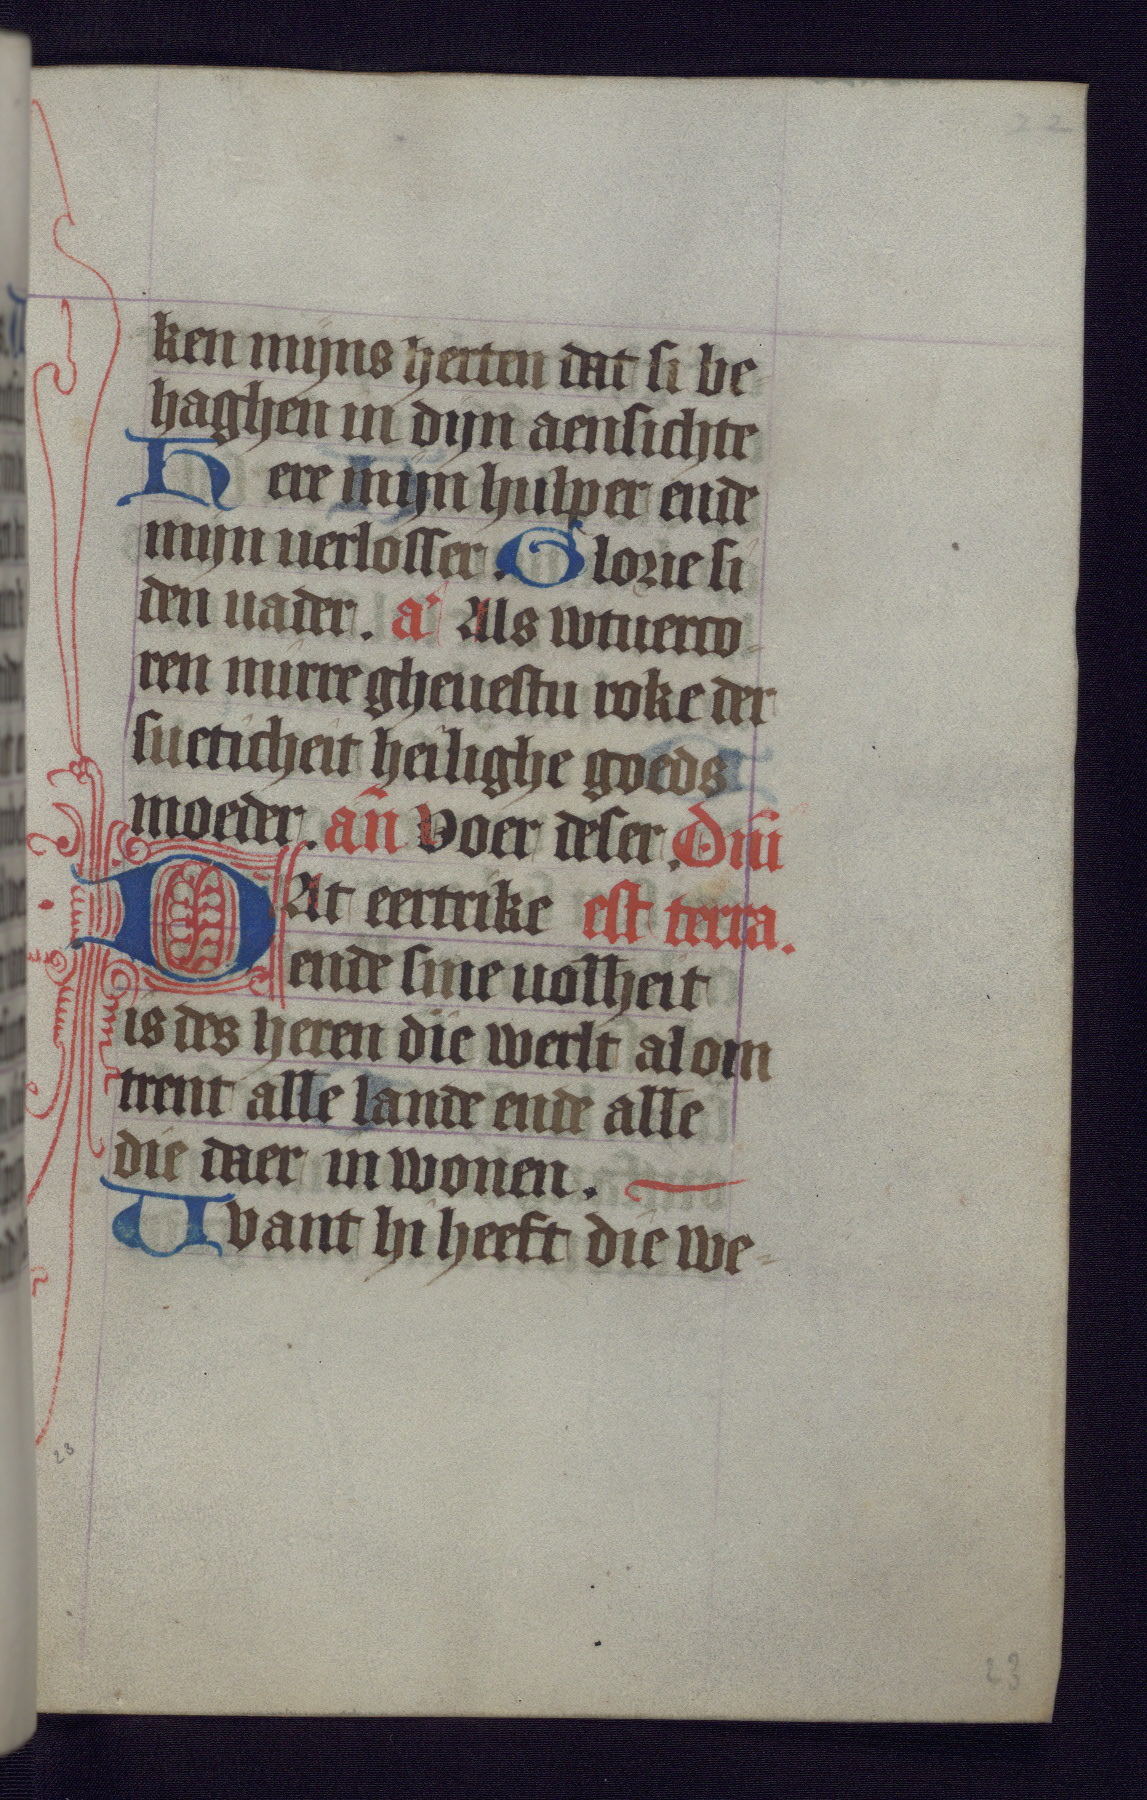 22
ken mijns herten dat si be-
haghen in dijn aensichte
Here mijn hulper ende
mijn uerlosser. Glorie si
den uader. a' Als wtuerco-
ren mirre gheuestu roke der
sueticheit heilighe goeds
moeder. an̄ Voer deser. Dn̄i
DAt eertrike est terra.
ende sine uolheit
is des heren die werlt al om
trent alle lande ende alle
die daer in wonen.
Uvant hi heeft die we-
23
23